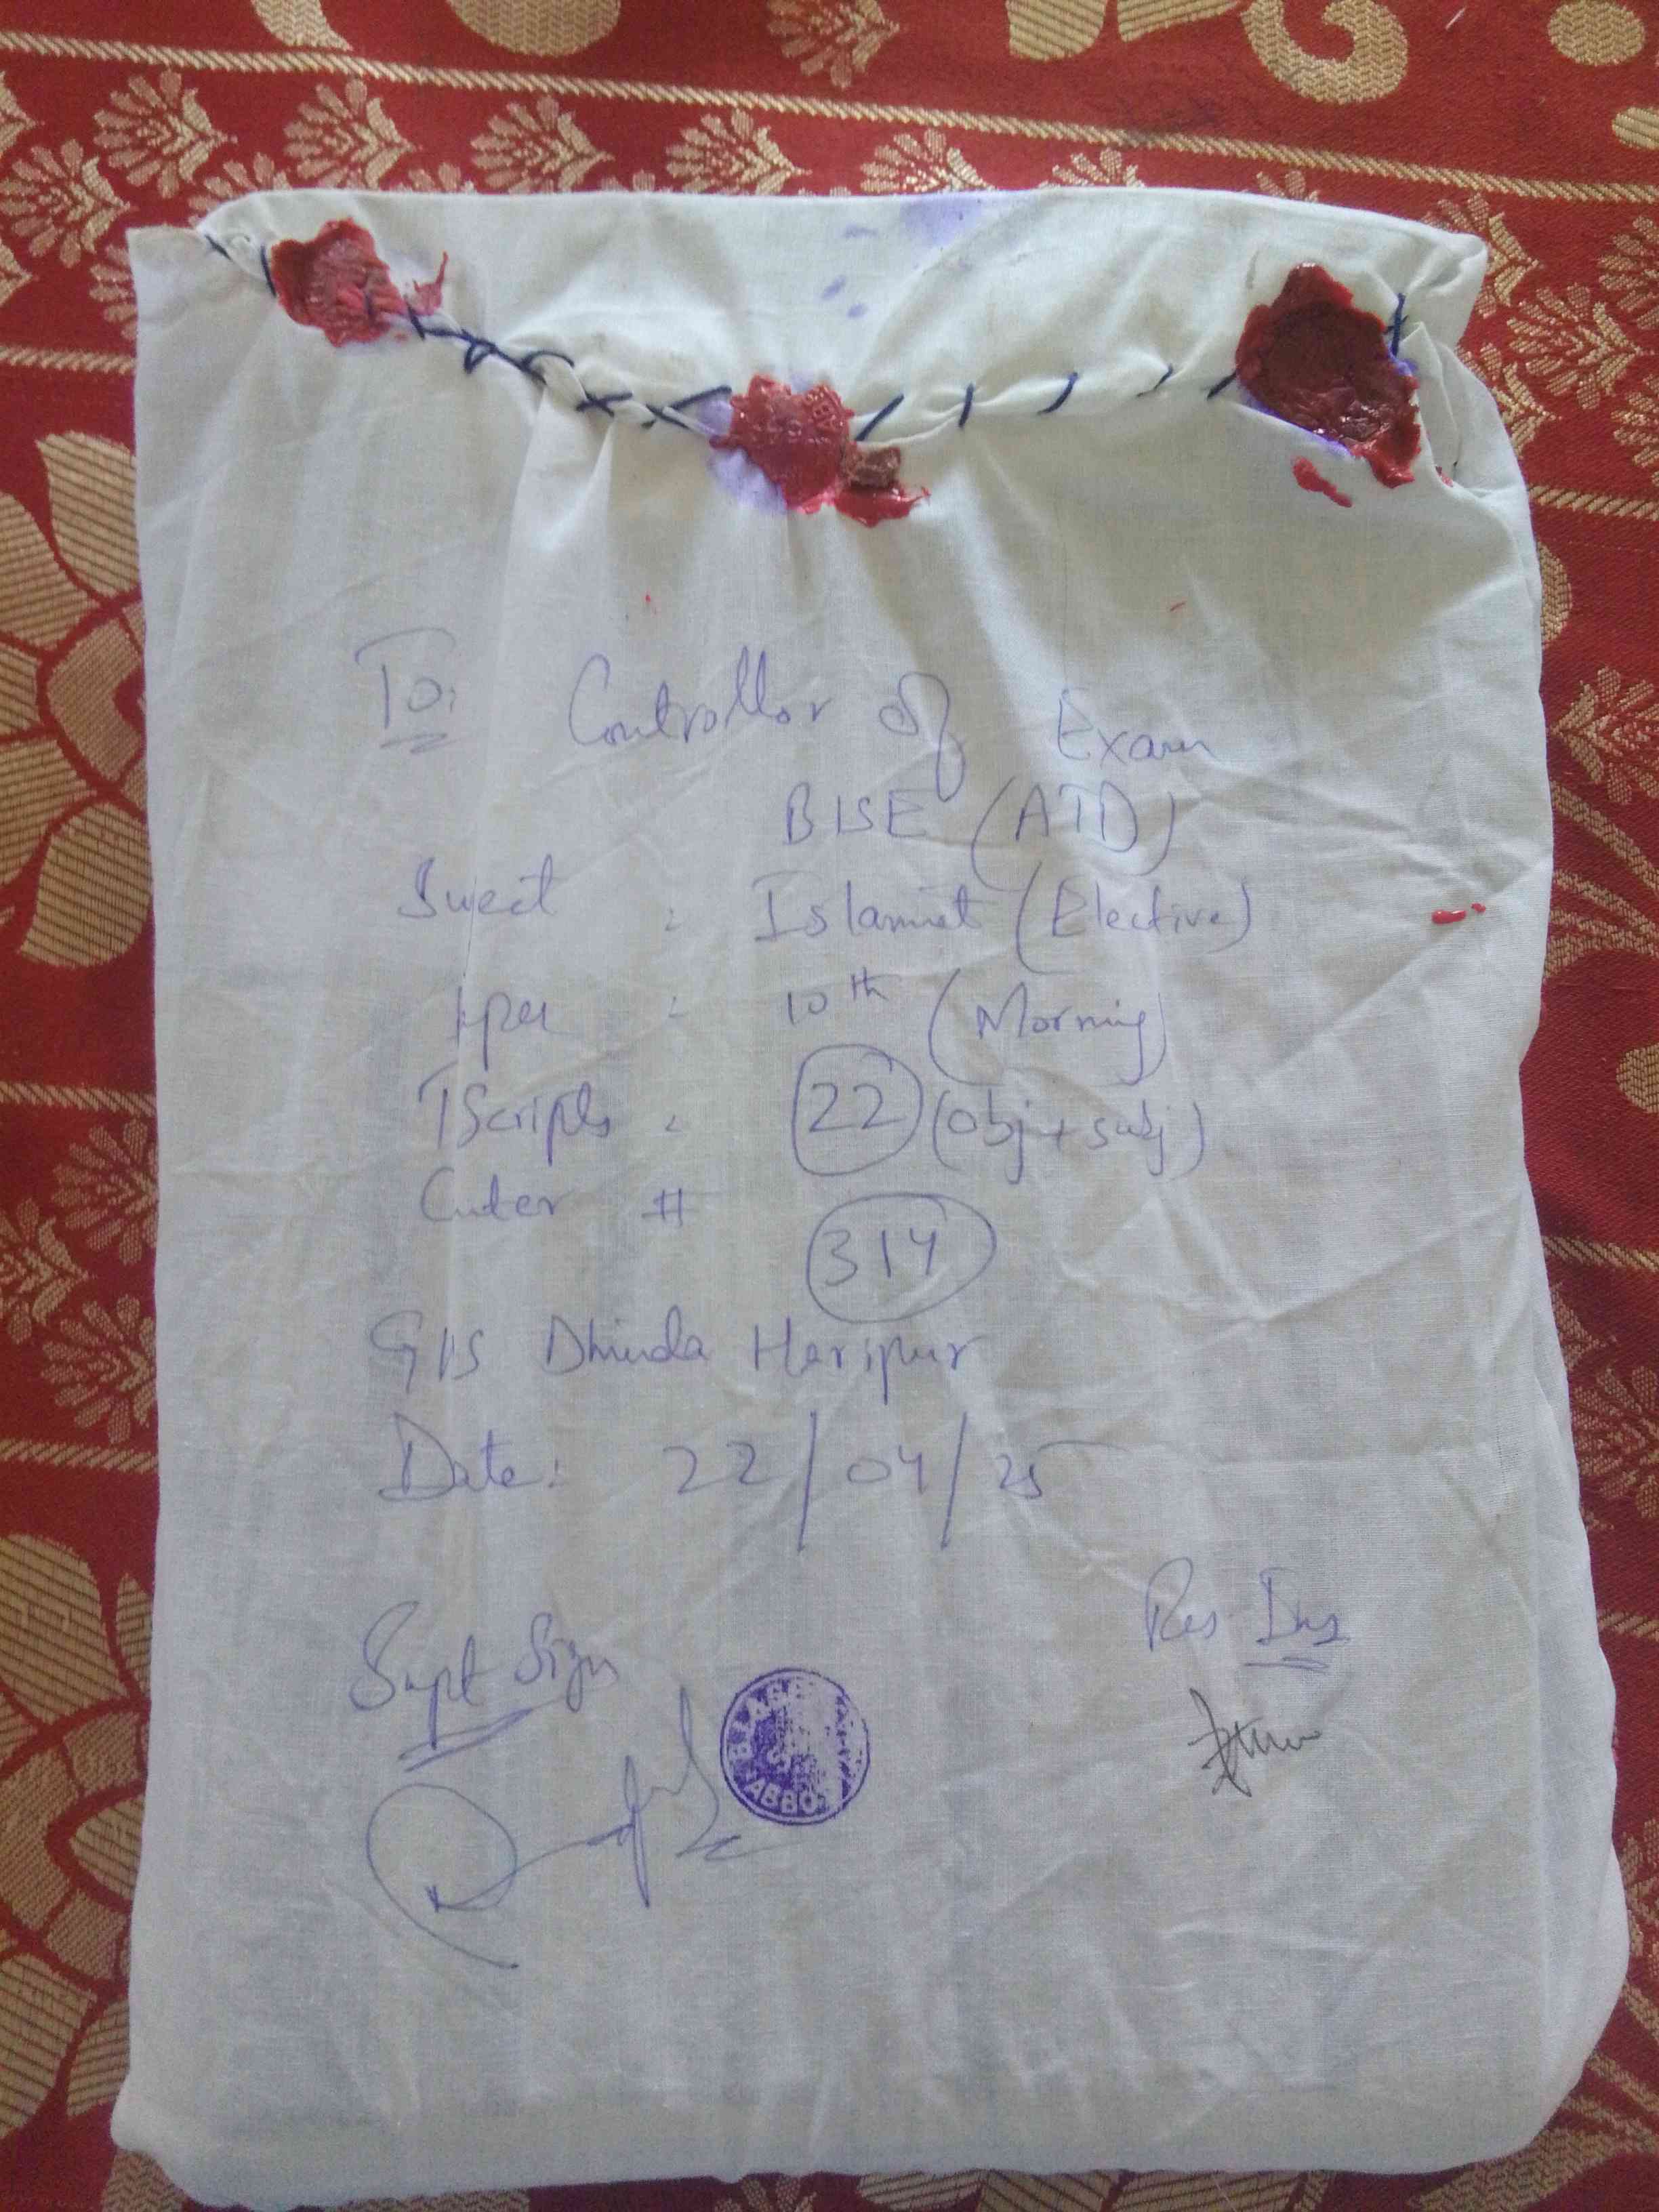 To: Controllor of Exam
BISE (ATD)
: Islamiat (Elective)
: 10th (Morning)
TScripts : 22 (obj + subj)
Center # 314
GHS Dhinda Haripur
Date: 22/04/25
Supt Sign
Res Ins
ABBO